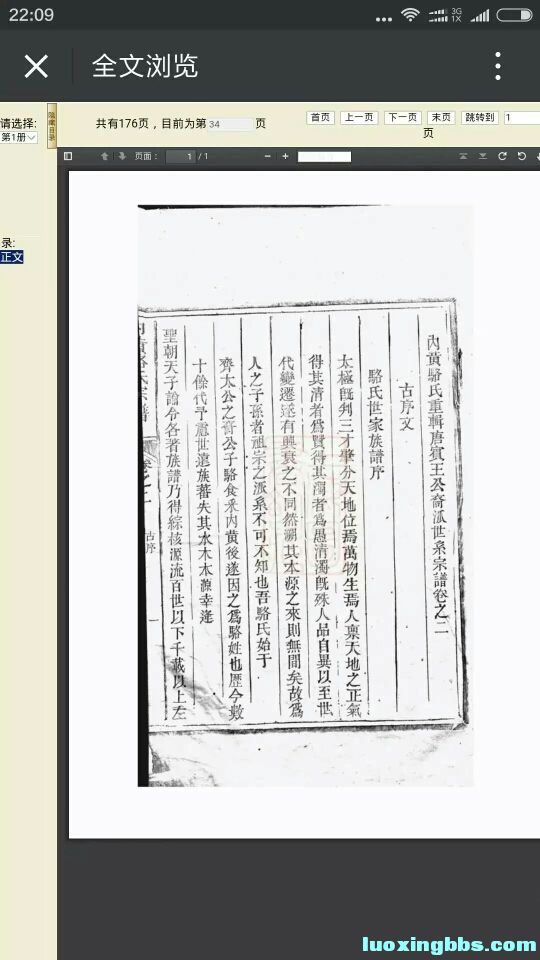 22:09
3G
1X
全文浏览
请选择:
第1册
隐藏目录
共有176页，目前为第 34 页
首页 上一页 下一页 末页 跳转到 1
页
页面： 1 / 1
录:
正文
內黃駱氏重輯唐賓王公裔派世系宗譜卷之二
古序文
駱氏世家族譜序
太極旣判三才肇分天地位焉萬物生焉人稟天地之正氣
得其清者爲賢得其濁者爲愚清濁旣殊人品自異以至世
代變遷遂有興衰之不同然溯其本源之來則無間矣故爲
人之子孫者祖宗之派系不可不知也吾駱氏始于
齊太公之裔公子駱食采內黃後遂因之爲駱姓也歷今數
十餘代予慮世遠族蕃失其水木本源幸逢
聖朝天子諭令各著族譜乃得綜核源流百世以下千載以上左
內黃駱氏宗譜
卷之二
古序
一
luoxingbbs.com